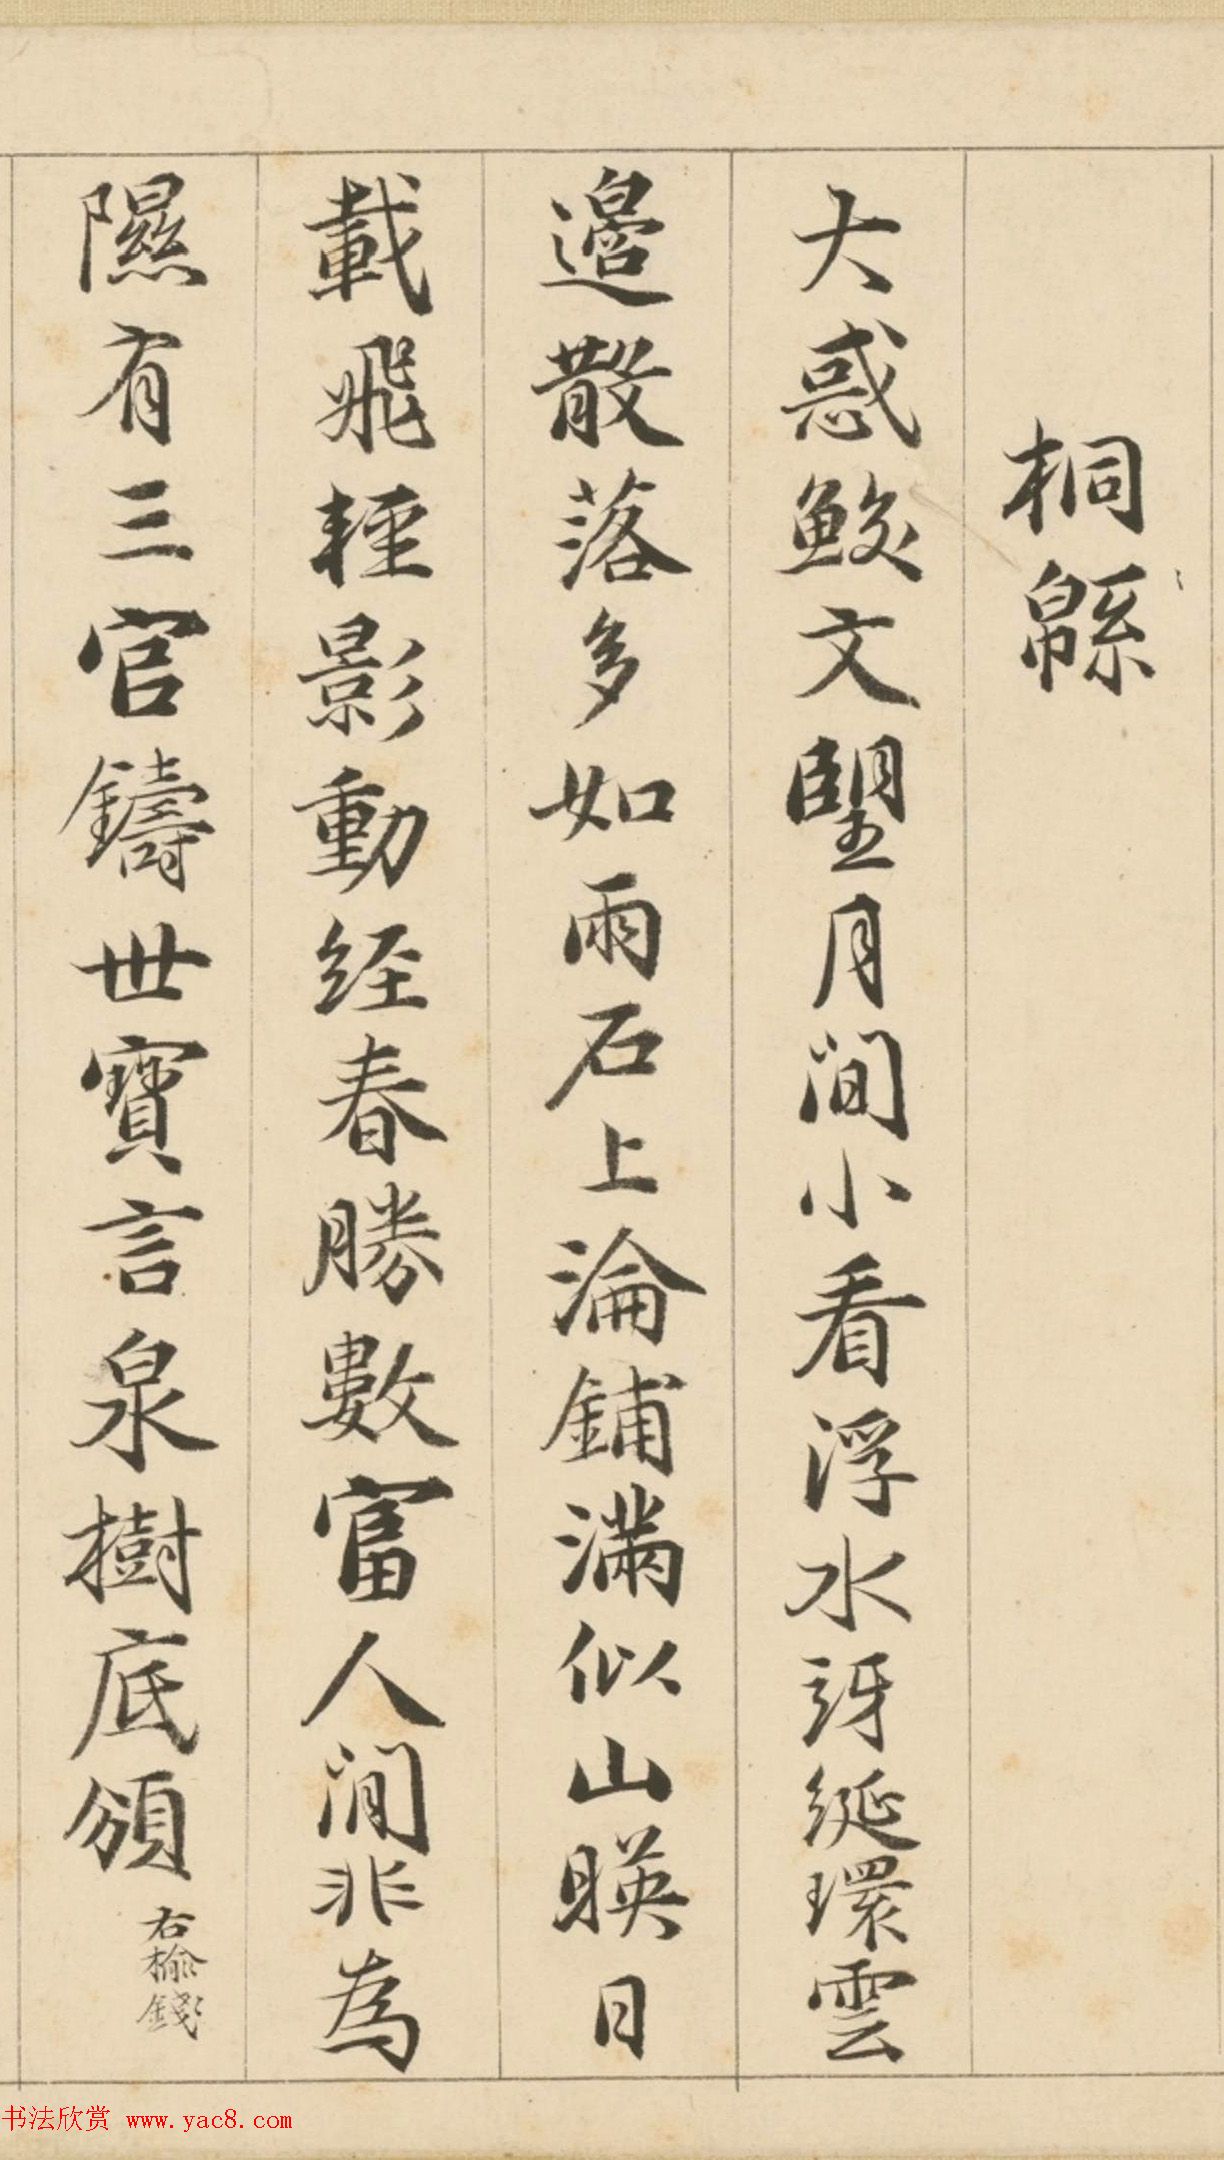 桐緜
大惑鮫文望月間小看浮水訝綖環雲
邉散落多如雨石上淪鋪滿似山暎日
載飛輕影動經春勝數富人間非為
隰有三官鑄世寳言泉樹底頒
右榆錢
书法欣赏 www.yac8.com